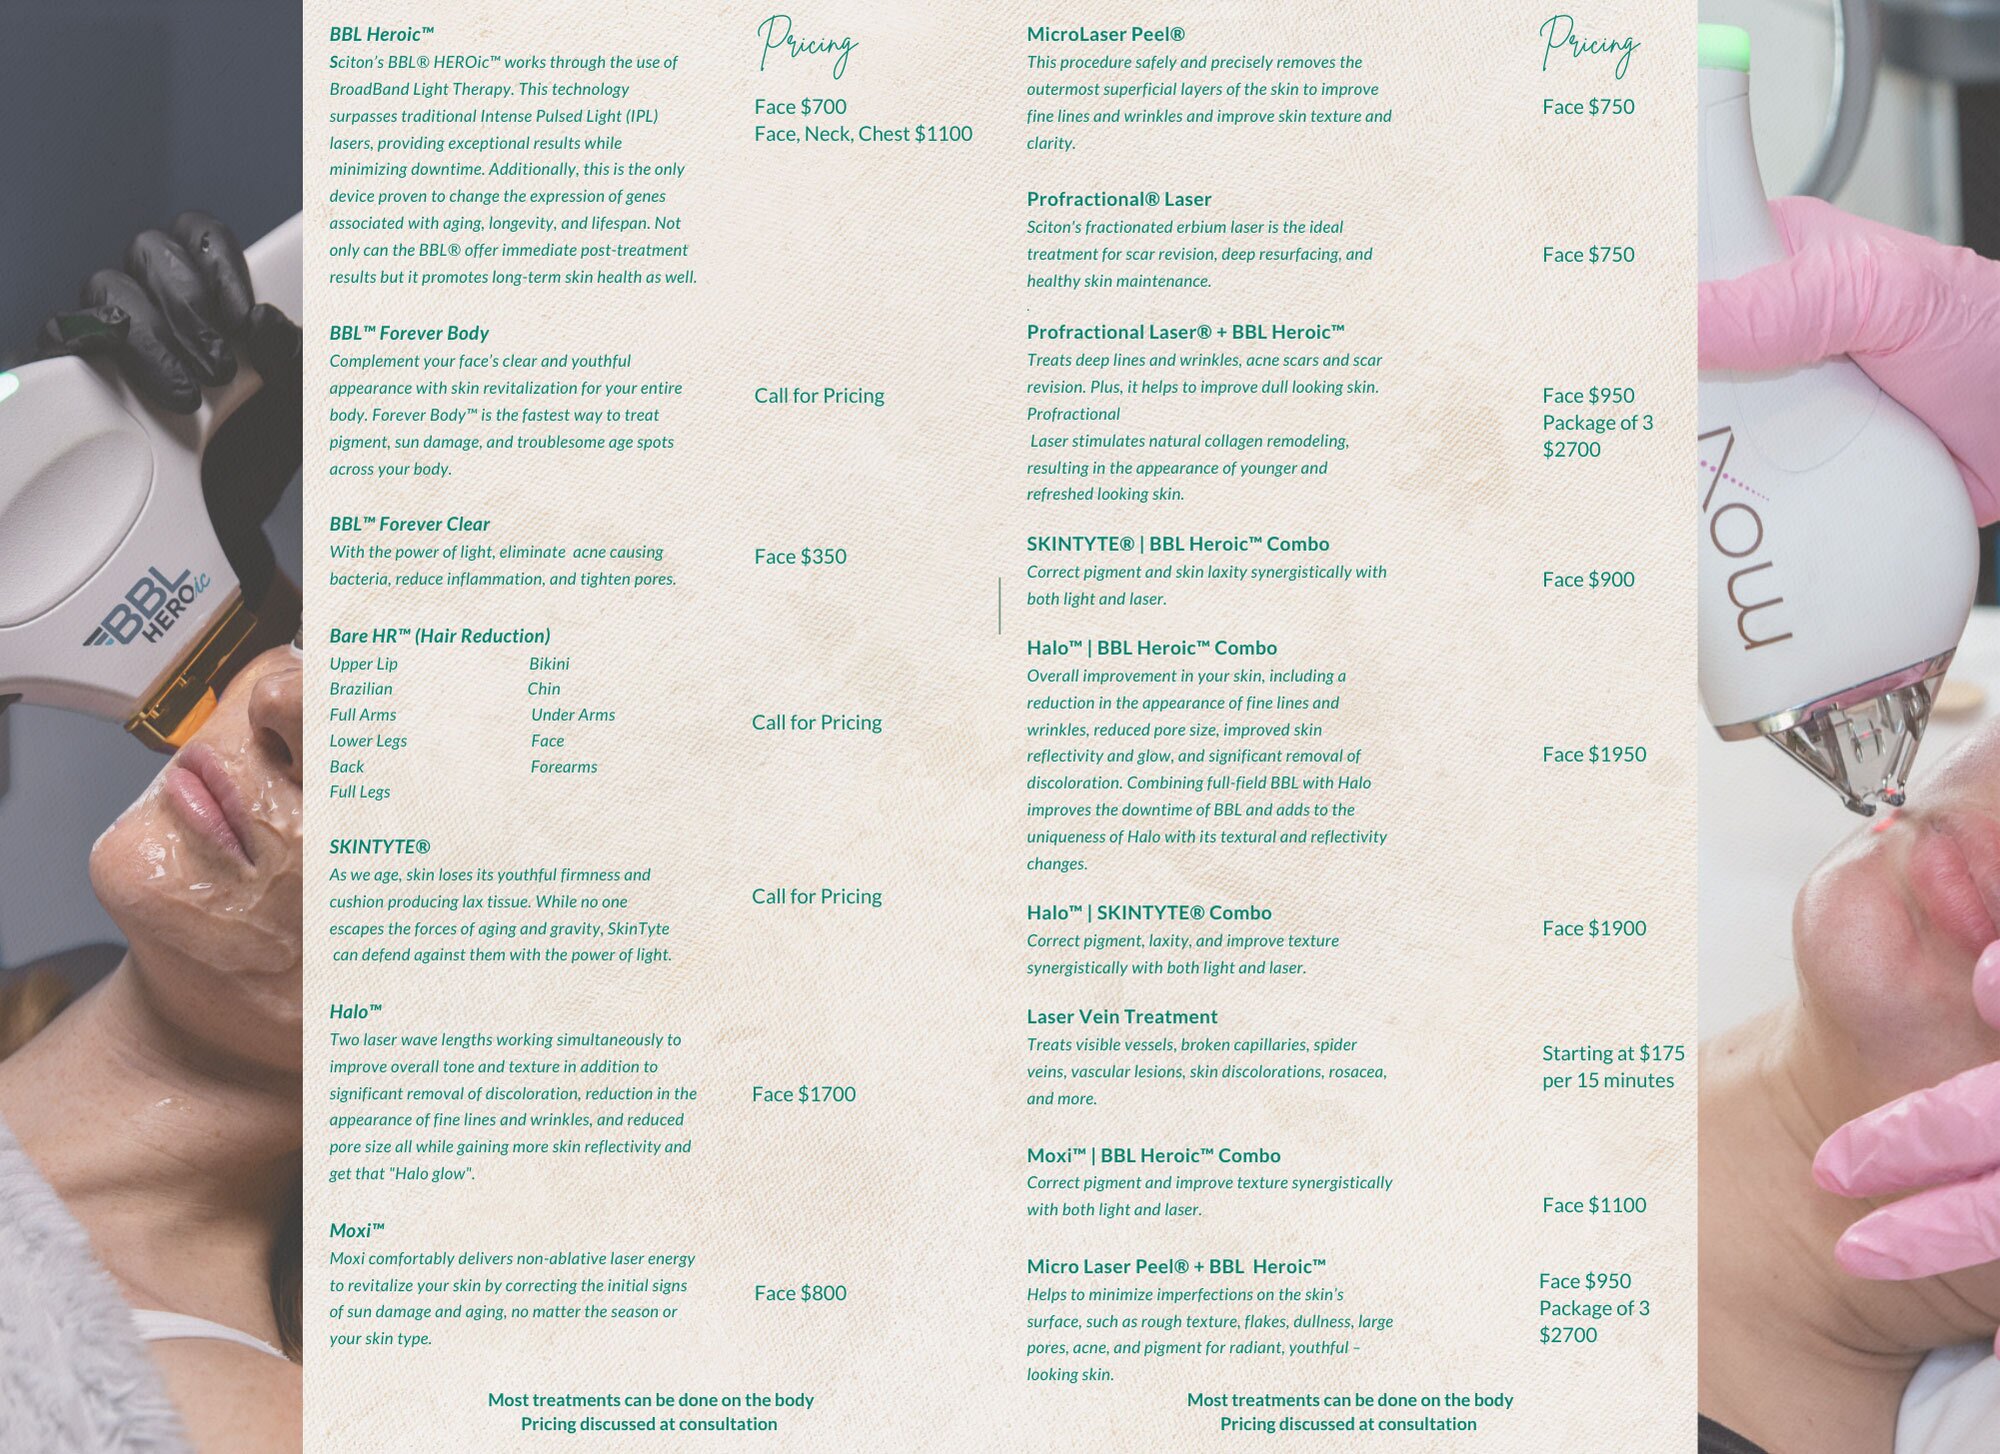 BBL Heroic™
Sciton's BBL® HEROic™ works through the use of
BroadBand Light Therapy. This technology
surpasses traditional Intense Pulsed Light (IPL)
lasers, providing exceptional results while
minimizing downtime. Additionally, this is the only
device proven to change the expression of genes
associated with aging, longevity, and lifespan. Not
only can the BBL® offer immediate post-treatment
results but it promotes long-term skin health as well.
Pricing
Face $700
Face, Neck, Chest $1100
BBL™ Forever Body
Complement your face's clear and youthful
appearance with skin revitalization for your entire
body. Forever Body™ is the fastest way to treat
pigment, sun damage, and troublesome age spots
across your body.
Call for Pricing
BBL™ Forever Clear
With the power of light, eliminate  acne causing
bacteria, reduce inflammation, and tighten pores.
Face $350
Bare HR™ (Hair Reduction)
Upper Lip Bikini
Brazilian Chin
Full Arms Under Arms
Lower Legs Face
Back Forearms
Full Legs
Call for Pricing
SKINTYTE®
As we age, skin loses its youthful firmness and
cushion producing lax tissue. While no one
escapes the forces of aging and gravity, SkinTyte
can defend against them with the power of light.
Call for Pricing
Halo™
Two laser wave lengths working simultaneously to
improve overall tone and texture in addition to
significant removal of discoloration, reduction in the
appearance of fine lines and wrinkles, and reduced
pore size all while gaining more skin reflectivity and
get that "Halo glow".
Face $1700
Moxi™
Moxi comfortably delivers non-ablative laser energy
to revitalize your skin by correcting the initial signs
of sun damage and aging, no matter the season or
your skin type.
Face $800
Most treatments can be done on the body
Pricing discussed at consultation
MicroLaser Peel®
This procedure safely and precisely removes the
outermost superficial layers of the skin to improve
fine lines and wrinkles and improve skin texture and
clarity.
Pricing
Face $750
Profractional® Laser
Sciton's fractionated erbium laser is the ideal
treatment for scar revision, deep resurfacing, and
healthy skin maintenance.
.
Face $750
Profractional Laser® + BBL Heroic™
Treats deep lines and wrinkles, acne scars and scar
revision. Plus, it helps to improve dull looking skin.
Profractional
Laser stimulates natural collagen remodeling,
resulting in the appearance of younger and
refreshed looking skin.
Face $950
Package of 3
$2700
SKINTYTE® | BBL Heroic™ Combo
Correct pigment and skin laxity synergistically with
both light and laser.
Face $900
Halo™ | BBL Heroic™ Combo
Overall improvement in your skin, including a
reduction in the appearance of fine lines and
wrinkles, reduced pore size, improved skin
reflectivity and glow, and significant removal of
discoloration. Combining full-field BBL with Halo
improves the downtime of BBL and adds to the
uniqueness of Halo with its textural and reflectivity
changes.
Face $1950
Halo™ | SKINTYTE® Combo
Correct pigment, laxity, and improve texture
synergistically with both light and laser.
Face $1900
Laser Vein Treatment
Treats visible vessels, broken capillaries, spider
veins, vascular lesions, skin discolorations, rosacea,
and more.
Starting at $175
per 15 minutes
Moxi™ | BBL Heroic™ Combo
Correct pigment and improve texture synergistically
with both light and laser.
Face $1100
Micro Laser Peel® + BBL  Heroic™
Helps to minimize imperfections on the skin's
surface, such as rough texture, flakes, dullness, large
pores, acne, and pigment for radiant, youthful –
looking skin.
Face $950
Package of 3
$2700
Most treatments can be done on the body
Pricing discussed at consultation
BBL
HEROic
moxi